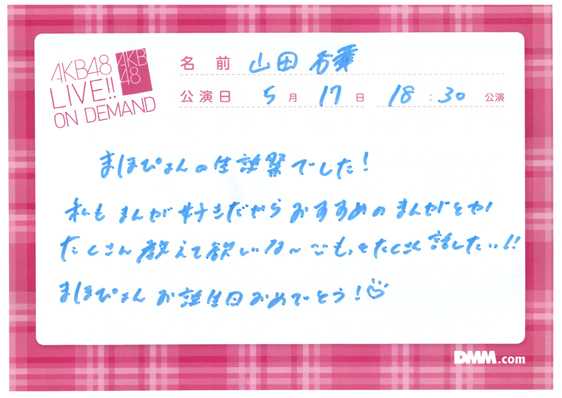 AKB48
LIVE!!
ON DEMAND
AKB
48
名前 山田杏華
公演日 5月17日 18:30公演
ましほぴょんの生誕祭でした!
私もまんが好きだからおすすめのまんがとか
たくさん教えて欲しいな〜もっとたくさん話したいっ!!
ましほぴょんお誕生日おめでとう!
DMM.com